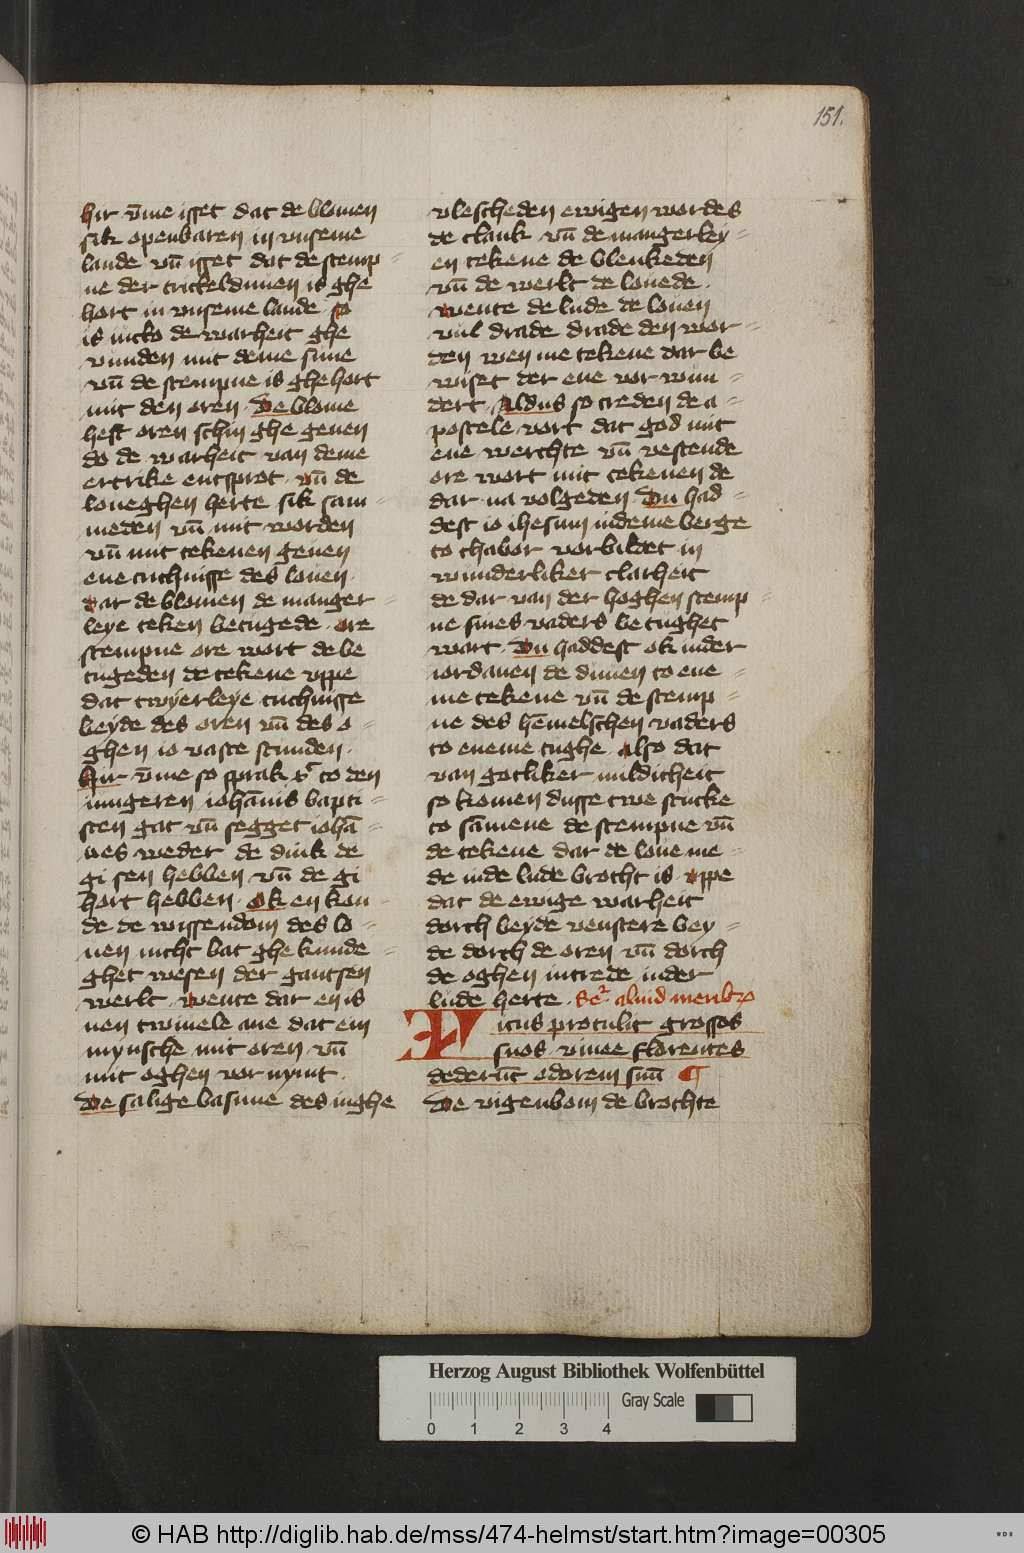 151.
Hir v̄me isset dat de blomen
sik openbaren in vnseme
lande vn̄ isset dat de stemp⸗
ne der turteldunen is ghe
hort in vnseme lande so
is nicko de warheit ghe
vunden mit deme sinne
vn̄ de stempne is ghehort
mit den oren · De blome
heft oren schin ghe geuen
do de warheit van deme
ertrike entsprot · vn̄ de
loueghen herte sik sam⸗
meden vn̄ mit worden
vn̄ mit tekenen geuen
ene tuchnisse des louen ·
dar de blomen de manger⸗
leye teken betugede · ore
stempne ore wort de be
tugeden de tekene vppe
dat twyerleye tuchnisse
beyde des oren vn̄ des o⸗
ghen io vaste stunden ·
Hir v̄me so sprak to den
iungeren ioha̅nis bapti⸗
sten gat vn̄ segget iohā⸗
nes weder de dink de
gi sen hebben vn̄ de gi
hort hebben · Ok en kon⸗
de de wissendom des lo⸗
uen nicht bat ghe kunde⸗
ghet wesen der gantsen
werlt · wente dar en is
nen twiuele ane dat ein
mynsche mit oren vn̄
mit oghen vor nymt ·
De salige basune des inghe
vlescheden ewigen wordes
de clank vn̄ de mangerley⸗
en tekene de blenkeden
vn̄ de werlt de louede ·
wente de lude de louen
vul drade drade den wor⸗
den wen me tekene dar be
wiset der ene vor wun⸗
dert · Aldus so treden de a⸗
postele vort dat god mit
ene werchte vn̄ vestende
ore wort mit tekenen de
dar na volgeden Du had⸗
dest io ihesum in deme berge
to thabor vorbildet in
wunderliker clarheit
de dar van der hoghen stemp⸗
ne sines vaders be tughet
wart · Du haddest ok in der
iordanen de dunen to ene⸗
me tekene vn̄ de stemp⸗
ne des he̅melschen vaders
to eneme tughe · Also dat
van gotliker mildicheit
so komen dusse twe stucke
to sa̅mene de stempne vn̄
de tekene dar de loue me⸗
de in de lude brocht is vppe
dat de ewige warheit
dorch beyde venstere bey⸗
de dorch de oren vn̄ dorch
de oghen in trede in der
lude herte · aliud
Ficus protulit grossos
suos · vinee florentes
dederu̅t odorem suu̅ ¶
De vigenbom de brochte
Herzog August Bibliothek Wolfenbüttel
Gray Scale
0 1 2 3 4
© HAB http://diglib.hab.de/mss/474-helmst/start.htm?image=00305